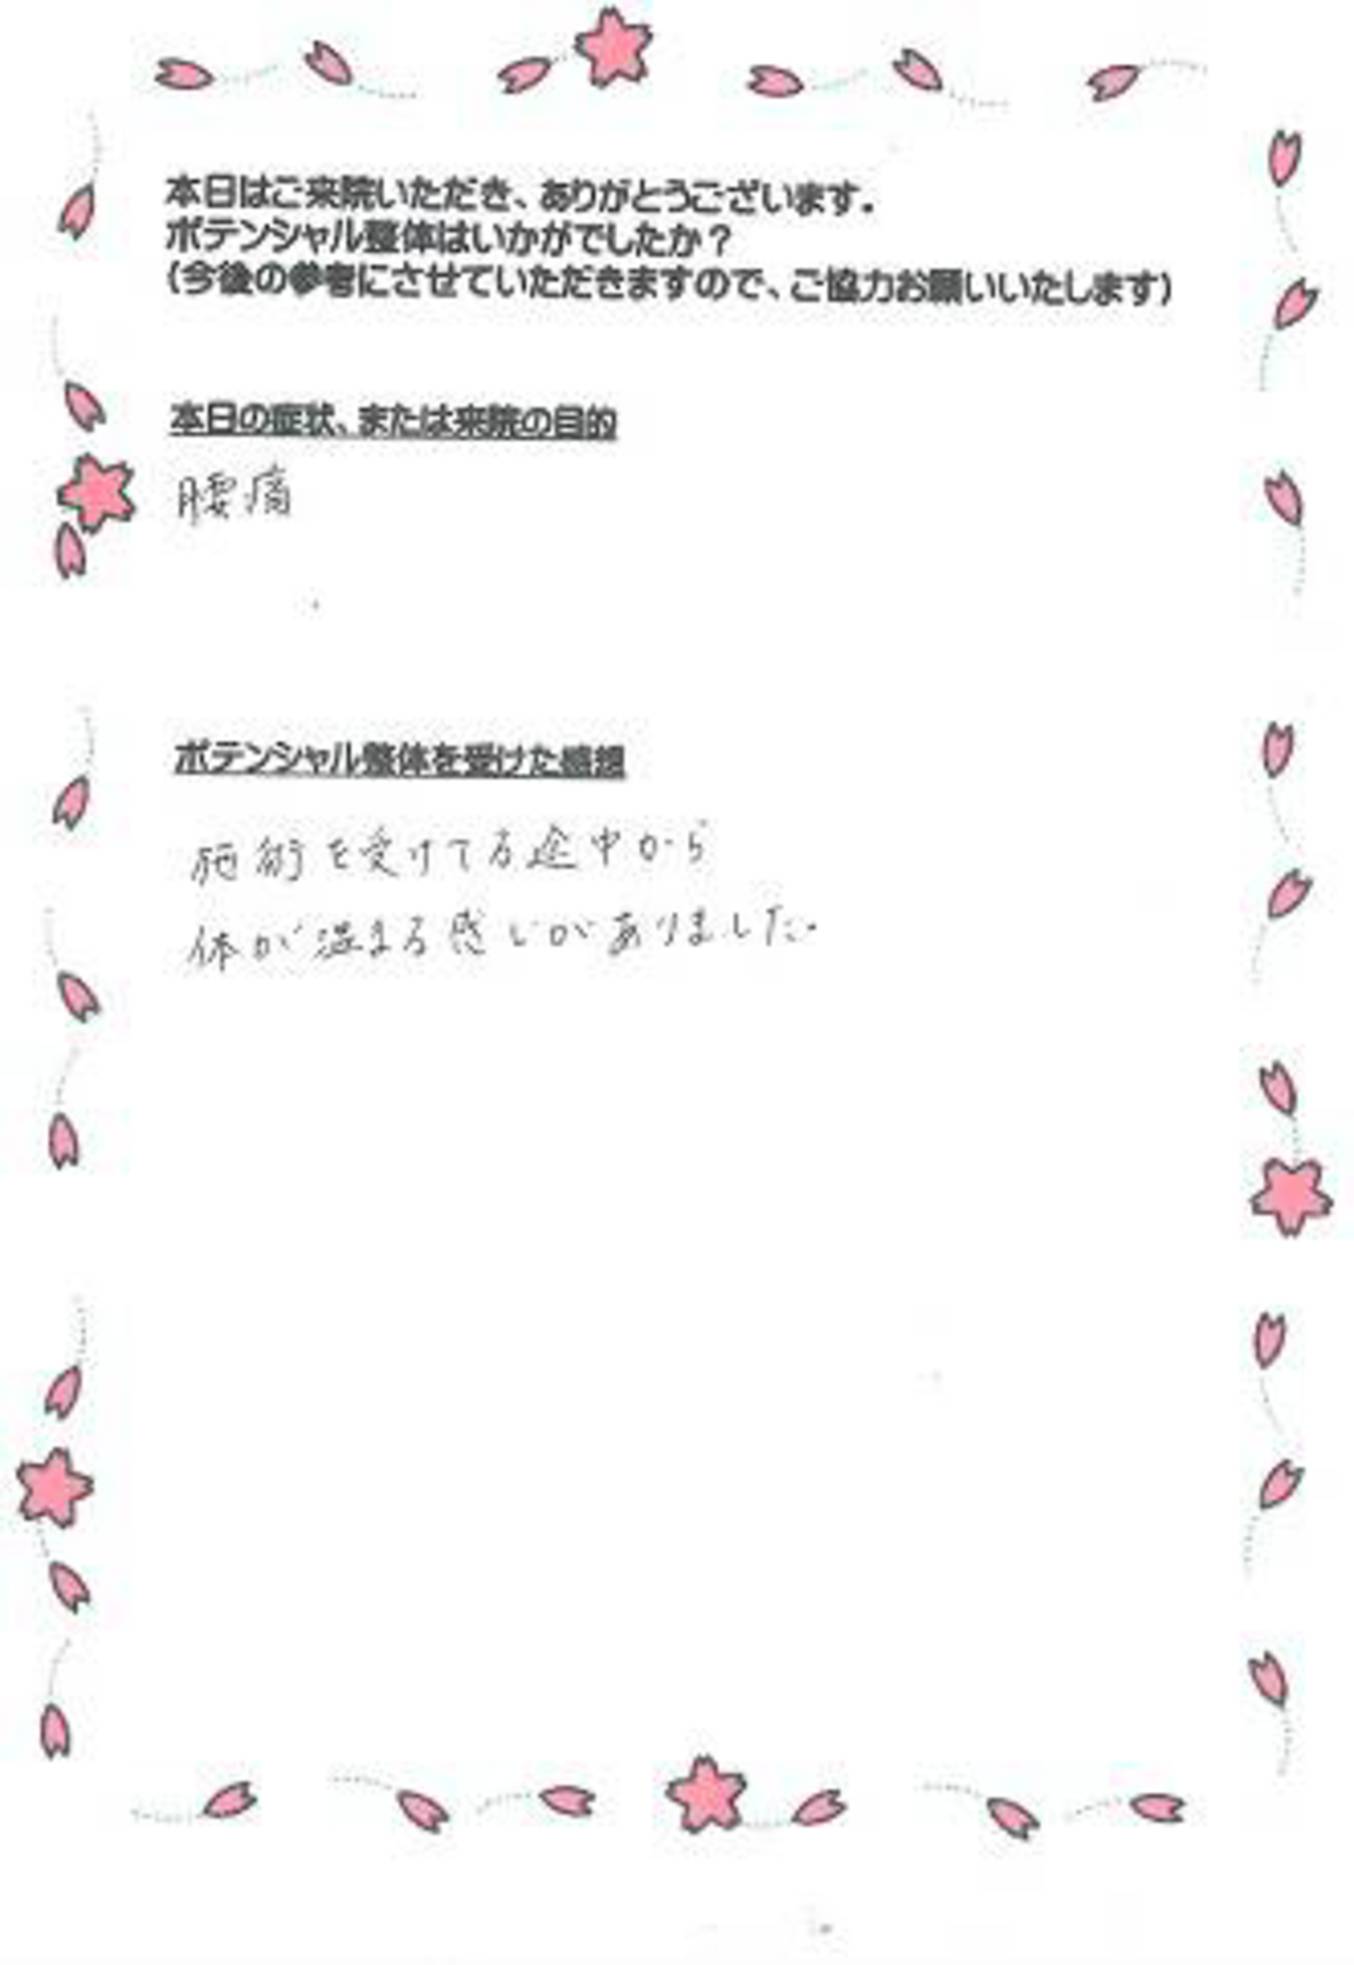 本日はご来院いただき、ありがとうございます。
ポテンシャル整体はいかがでしたか？
(今後の参考にさせていただきますので、ご協力お願いいたします)
本日の症状、または来院の目的
腰痛
ポテンシャル整体を受けた感想
施術を受けてる途中から
体が温まる感じがありました。